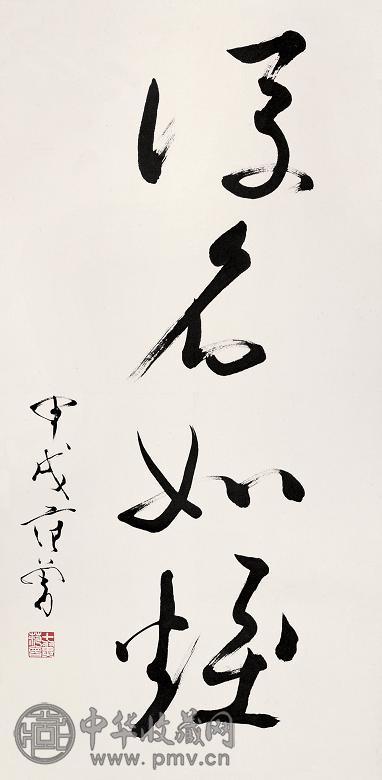 浮名如煙
甲戌
中华收藏网
www.pmv.cn